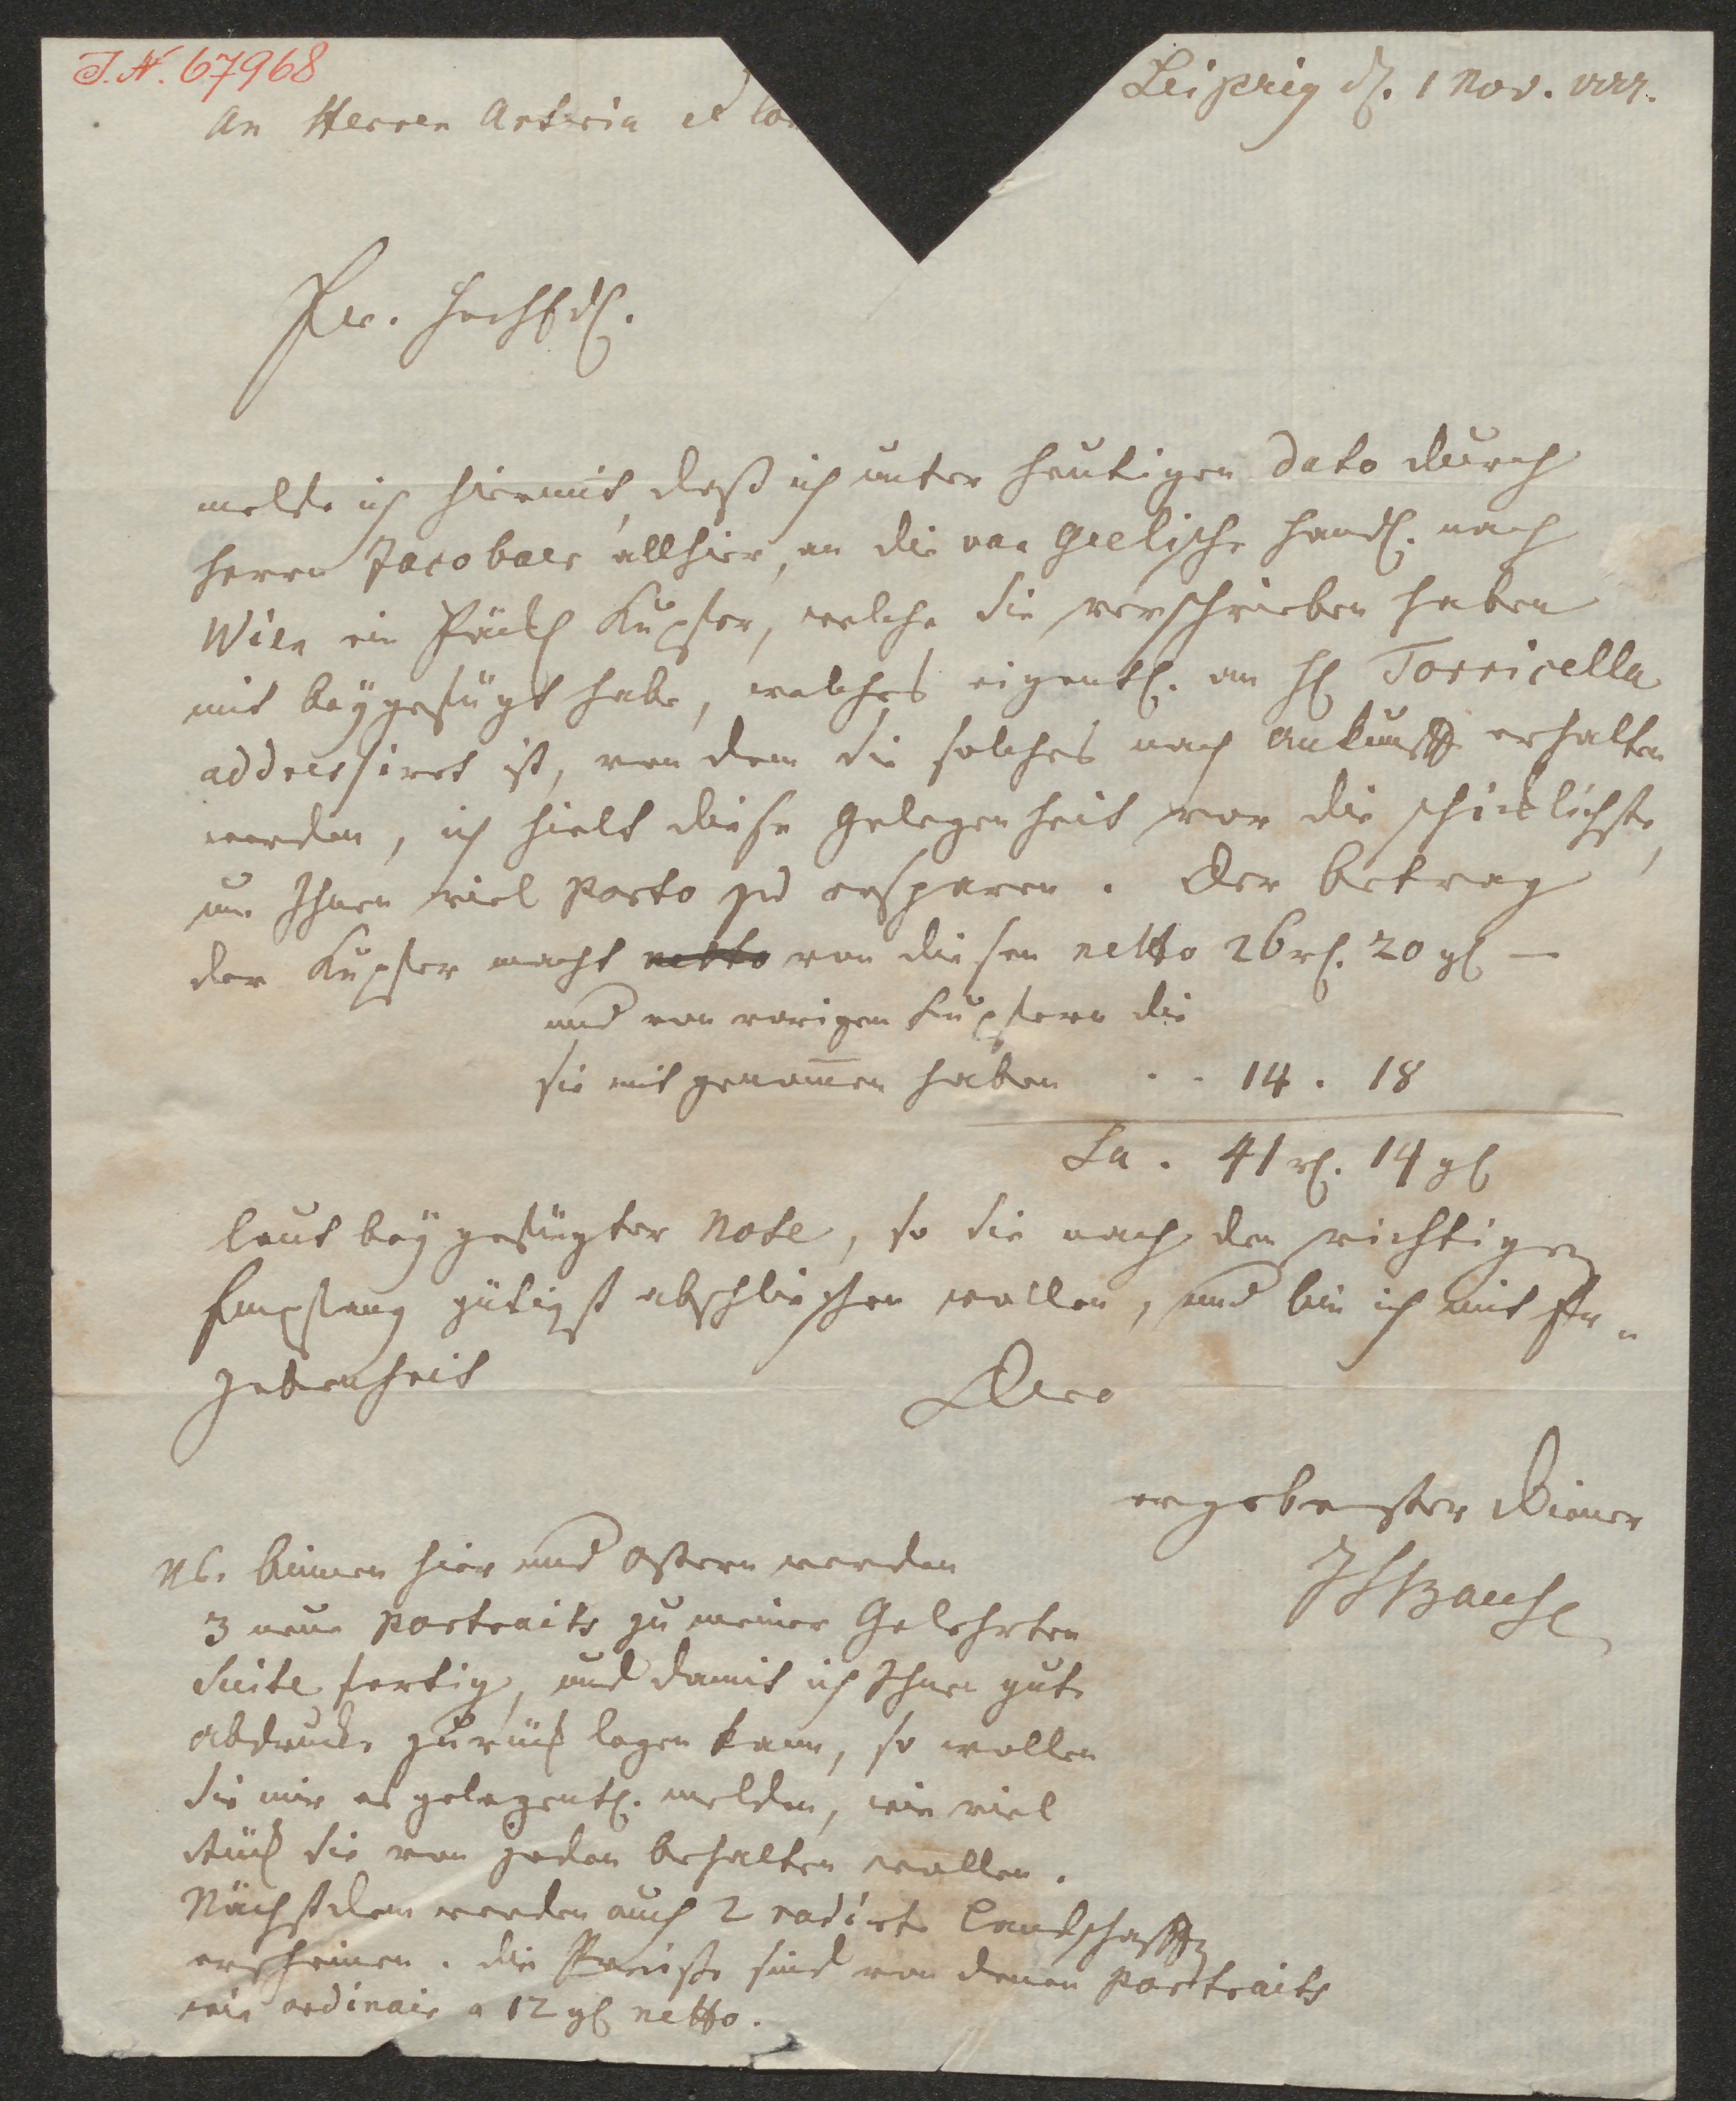 J. N. 67968
An Herren Artaria et Co
Leipzig d. 1 Nov.
Pr. HochEdl.
melde ich hiermit, daß ich unter heutigen dato durch
Herrn Jacobaer allhier, an die van Ghelische Handl. nach
Wien ein Päckl Kupfer, welche Sie verschrieben haben
mit beÿgefügt habe, welches eigentl. an Hl Torricella
addressiret ist, von dem Sie solches nach Ankunfft erhalten
werden, ich hielt diese Gelegenheit vor die schicklichste,
um Ihnen viel Porto zu ersparen. Der Betrag
der Kupfer macht netto von diesen netto 26 rl. 20 gl —
und von vorigen Kupfern die
sie mit genom̅en haben . . 14 . 18
Sa . 41 rl. 14 gl
laut beÿ gefügter Note, so Sie nach den richtigen
Empfang gütigst abschließen wollen, und bin ich mit Er„
gebenheit
Dero
ergebenster Diener
JFBause
NB. binnen hier und Ostern werden
3 neue Portraits zu meiner Gelehrten
Suite fertig, und damit ich Ihnen gute
Abdrucke zurück legen kann, so wollen
Sie mir es gelegentl. melden, wie viel
Stück Sie von jeden behalten wollen.
Nächstdem werden auch 2 radirte Landschafften
erscheinen. die Preisse sind von denen Portraits
wie ordinair a 12 gl netto.